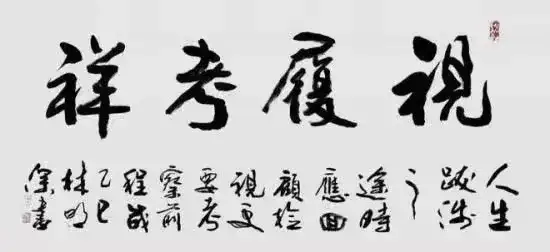 視履考祥
人生
跋涉
之
途時
應回
顧檢
視更
要考
察前
程歲
乙巳
林明
深書